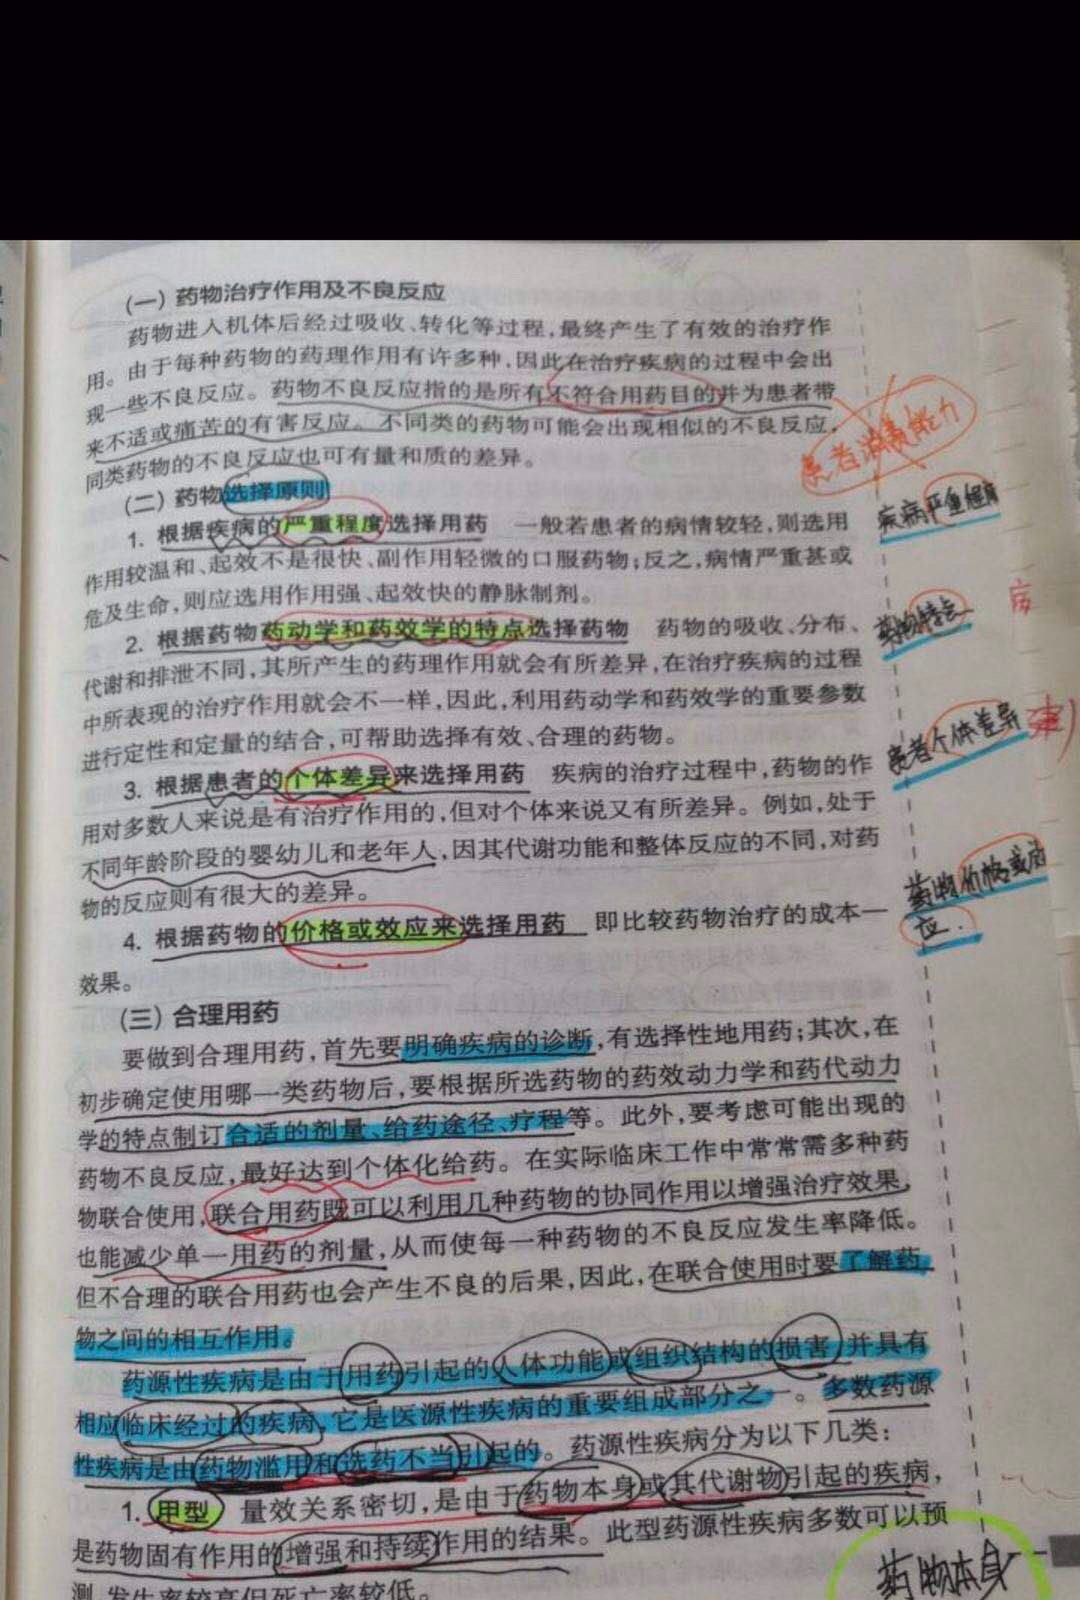 (一) 药物治疗作用及不良反应
药物进入机体后经过吸收、转化等过程,最终产生了有效的治疗作
用。由于每种药物的药理作用有许多种,因此在治疗疾病的过程中会出
现一些不良反应。药物不良反应指的是所有不符合用药目的并为患者带
来不适或痛苦的有害反应。不同类的药物可能会出现相似的不良反应,
同类药物的不良反应也可有量和质的差异。
患者消费能力
(二) 药物选择原则
1. 根据疾病的严重程度选择用药 一般若患者的病情较轻,则选用
疾病严重程度
作用较温和、起效不是很快、副作用轻微的口服药物;反之,病情严重甚或
危及生命,则应选用作用强、起效快的静脉制剂。
2. 根据药物药动学和药效学的特点选择药物 药物的吸收、分布、
药物特点
代谢和排泄不同,其所产生的药理作用就会有所差异,在治疗疾病的过程
中所表现的治疗作用就会不一样,因此,利用药动学和药效学的重要参数
进行定性和定量的结合,可帮助选择有效、合理的药物。
患者个体差异
3. 根据患者的个体差异来选择用药 疾病的治疗过程中,药物的作
用对多数人来说是有治疗作用的,但对个体来说又有所差异。例如,处于
不同年龄阶段的婴幼儿和老年人,因其代谢功能和整体反应的不同,对药
物的反应则有很大的差异。
药物价格或效
应.
4. 根据药物的价格或效应来选择用药 即比较药物治疗的成本—
效果。
(三) 合理用药
要做到合理用药,首先要明确疾病的诊断,有选择性地用药;其次,在
初步确定使用哪一类药物后,要根据所选药物的药效动力学和药代动力
学的特点制订合适的剂量、给药途径、疗程等。此外,要考虑可能出现的
药物不良反应,最好达到个体化给药。在实际临床工作中常常需多种药
物联合使用,联合用药既可以利用几种药物的协同作用以增强治疗效果,
也能减少单一用药的剂量,从而使每一种药物的不良反应发生率降低。
但不合理的联合用药也会产生不良的后果,因此,在联合使用时要了解药
物之间的相互作用。
药源性疾病是由于用药引起的人体功能或组织结构的损害,并具有
相应临床经过的疾病,它是医源性疾病的重要组成部分之一。多数药源
性疾病是由药物滥用和选药不当引起的。药源性疾病分为以下几类:
1. 甲型 量效关系密切,是由于药物本身或其代谢物引起的疾病,
是药物固有作用的增强和持续作用的结果。此型药源性疾病多数可以预
药物本身
测,发生率较高但死亡率较低。